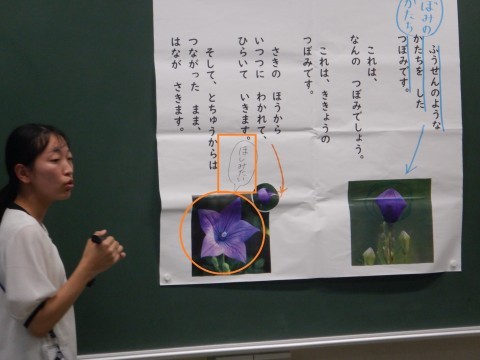 つぼみの
かたち
ふうせんのような
かたちを した
つぼみです。
これは、
なんの つぼみでしょう。
これは、ききょうの
つぼみです。
さきの ほうから
いつつに わかれて、
ひらいて いきます。
そして、とちゅうからは
つながった まま、
はなが さきます。
ほしみたい